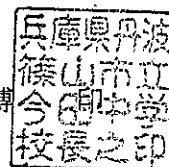 兵庫県丹波
篠山市立
今田中学
校長之印
印